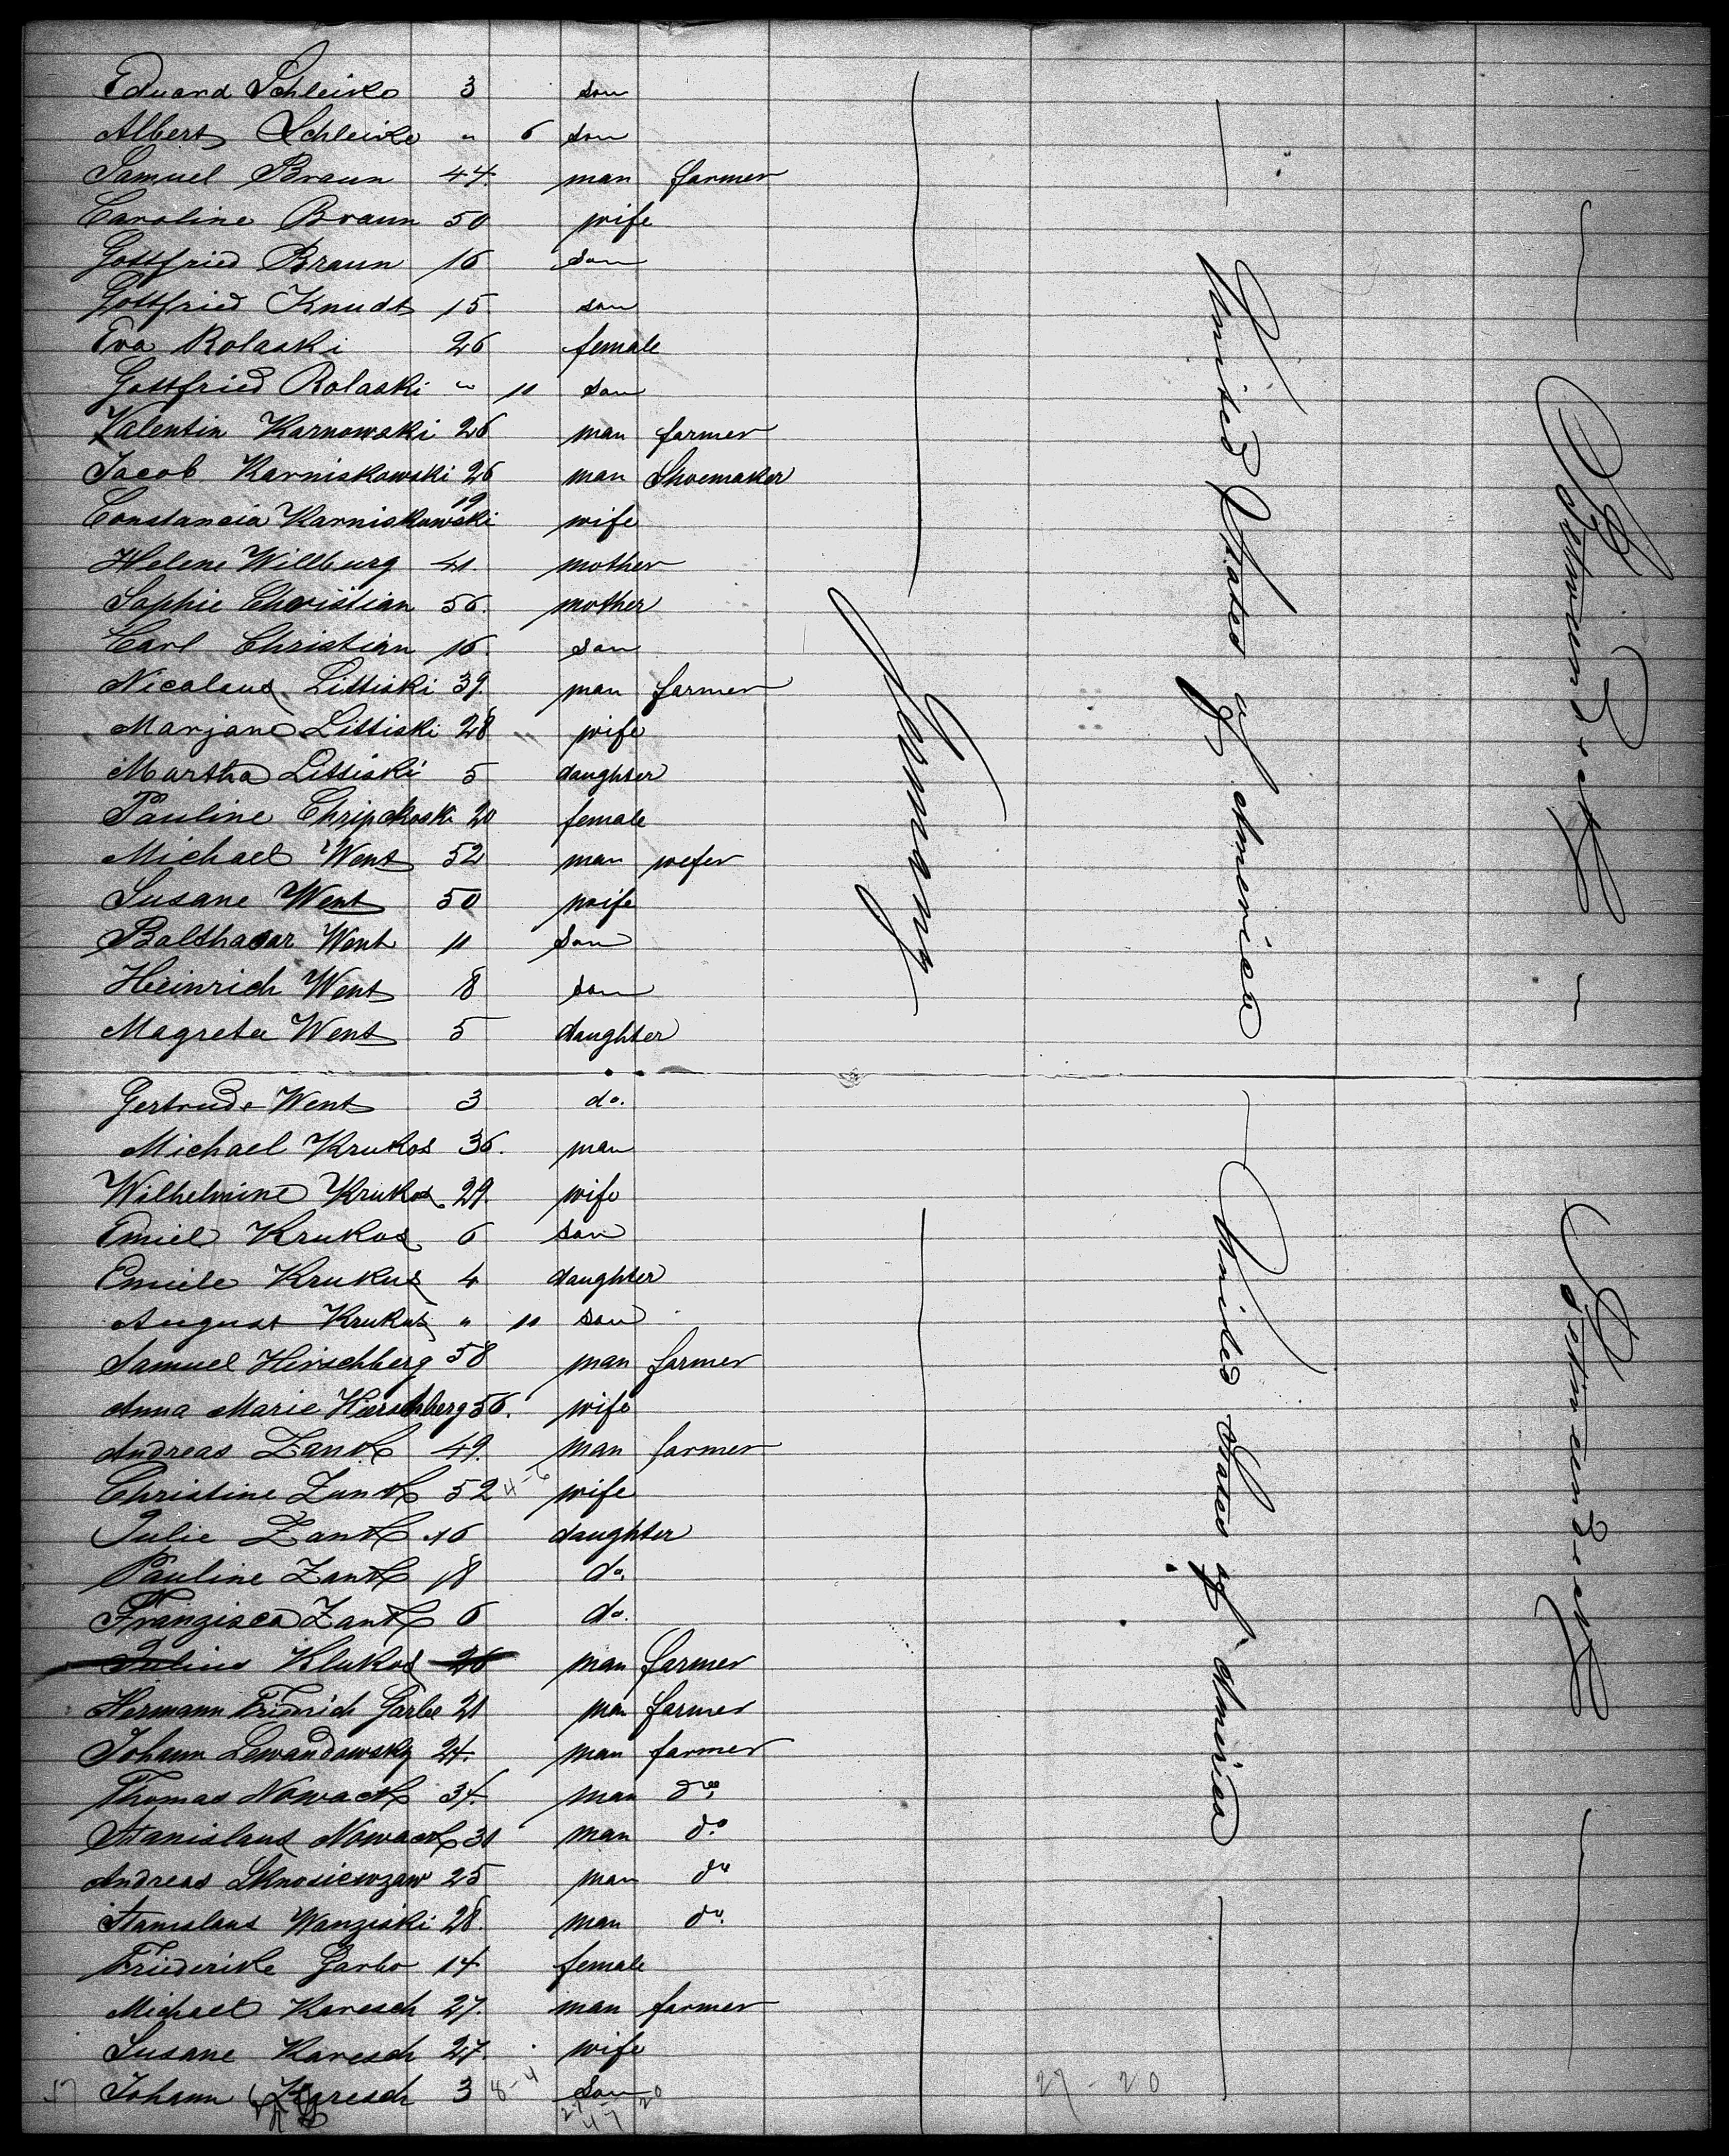 Eduard Schleike 3 son
Albert Schleike " 6 son
Samuel Braun 44. man farmer
Caroline Braun 50 wife
Gottfried Braun 16 son
Gottfried Knudt 15 son
Eva Rolaski 26 female
Gottfried Rolaski " 11 son
Valentin Karnowski 26 man farmer
Jacob Karniskowski 26 man Shoemaker
Constancia Karniskowski 19 wife
Helene Willburg 41. mother
Sophie Christian 56. mother
Carl Christian 16. son
Nicolaus Littiski 39. man farmer
Marjane Littiski 28 wife
Martha Littiski 5 daughter
Pauline 20 female
Michael Went 52 man wefer
Susane Went 50 wife
Balthasar Went 11 son
Heinrich Went 8 son
Magreta Went 5 daughter
Gertrude Went 3 do.
Michael Krukos 36. man
Wilhelmine Krukos 29. wife
Emiel Krukos 6 son
Emiele Krukus 4 daughter
August Krukus " 11 son
Samuel Hirschberg 58 man farmer
Anna Marie Hirschberg 56. wife
Andreas Zank 49. man farmer
Christine Zank 52 4-6 wife
Julie Zank 16 daughter
Pauline Zank 18 do.
Franzisca Zank 6 do.
Julius Klukos 26 man farmer
Hermann Friedrich Garbe 21 man farmer
Johann Lewandowsky 24. man farmer
Thomas Nowack 34. man do.
Stanislaus Nowack 31 man do.
Andreas 25 man do
Stanislaus Wanziski 28. man do.
Friederike Garbe 14 female
Michael Karesch 27. man farmer
Susane Karesch 27. wife
Johann Karesch 3 8-4 son
27 20
47
27-20
Germany
United States of America
United States of America